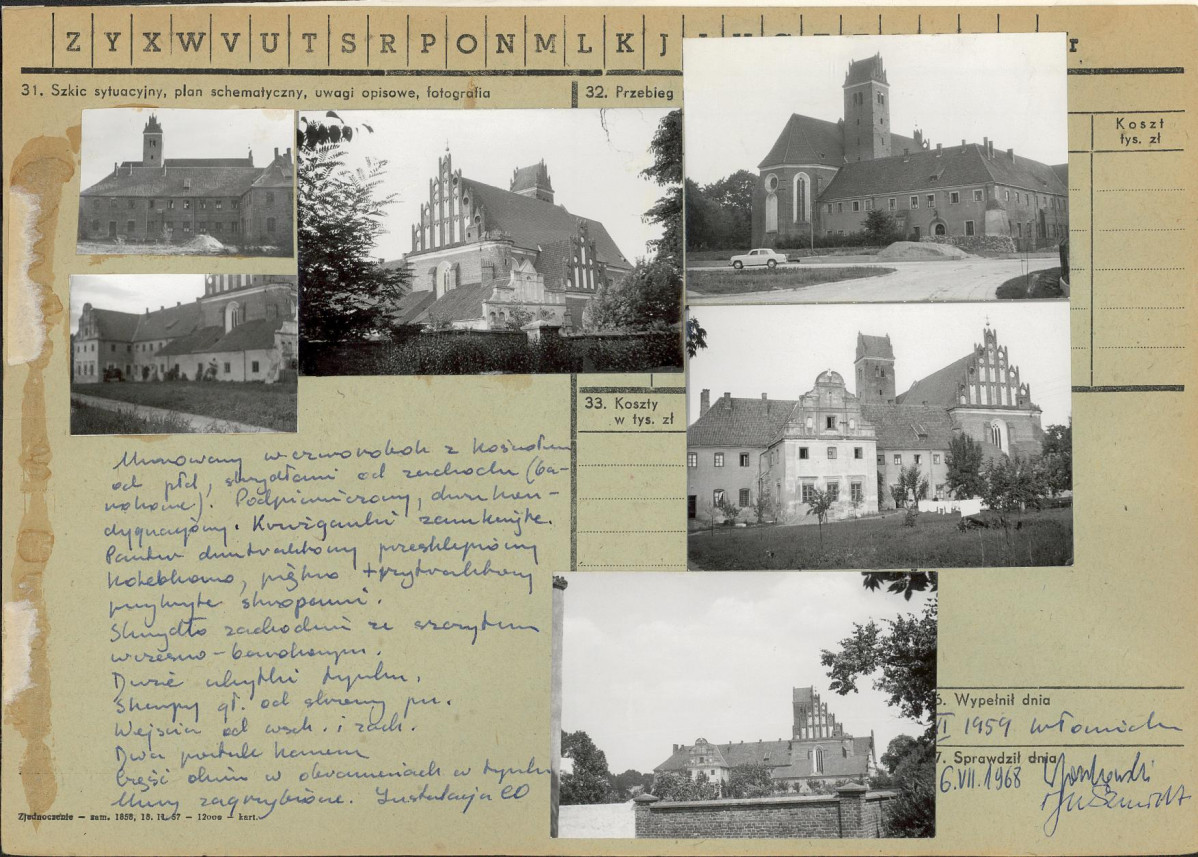 Z Y X W V U T S R P O N M L K J
31. Szkic sytuacyjny, plan schematyczny, uwagi opisowe, fotografia
32. Przebieg
Koszt
tys. zł
33. Koszty
w tys. zł
Murowany w czworobok z kościołem
od płd, skrzydłami od zachodu (ba-
rokowe). Podpiwniczony, dwukon-
dygnacyjny. Krużganki zamknięte.
Parter dwutraktowy przesklepiony
kolebkowo, piętro trzytraktowy
przykryte stropami.
Skrzydło zachodnie ze szczytem
wczesno-barokowym.
Duże ubytki tynku.
Skarpy gł. od strony pn.
Wejścia od wsch. i zach.
Dwa portale kamienn
Część okien w obramieniach w tynku
Mury zagrzybione. Instalacja CO
6. Wypełnił dnia
II 1959
7. Sprawdził dnia
6.VII.1968
Zjednoczenie – zam. 1858, 18. II. 67 – 12000 – kart.